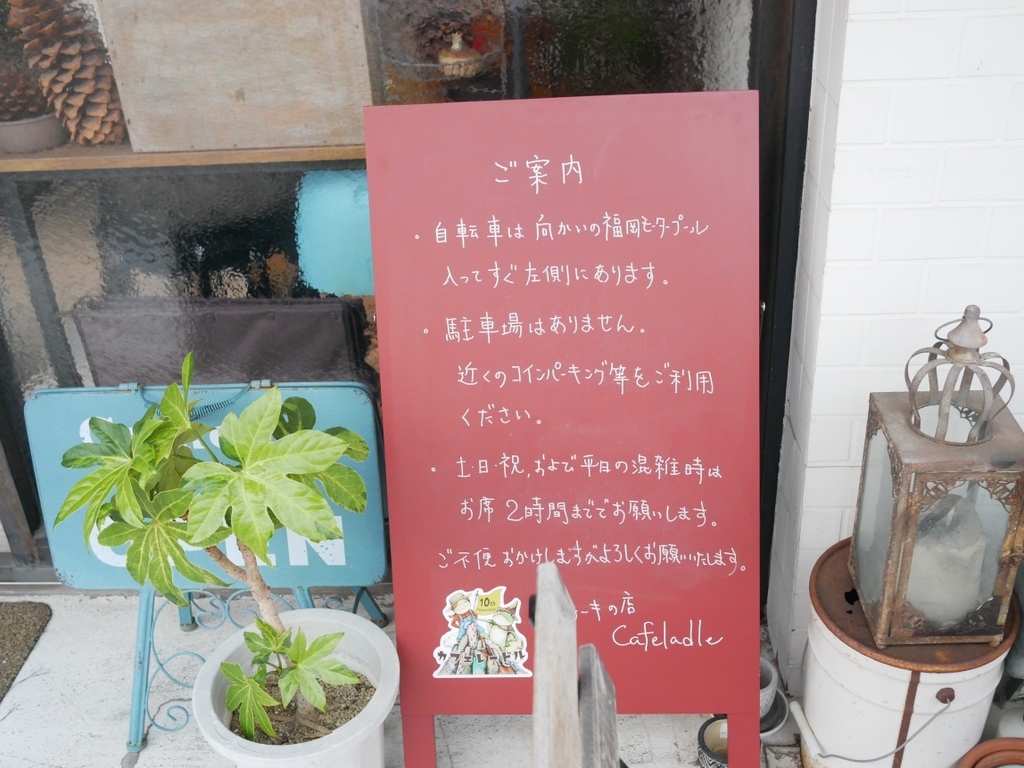 ご案内
・自転車は向かいの福岡モータープール
入ってすぐ左側にあります。
・駐車場はありません。
近くのコインパーキング等をご利用
ください。
・土・日・祝,および平日の混雑時は
お席2時間まででお願いします。
ご不便おかけしますがよろしくお願いいたします。
ーキの店
Cafeladle
10th
カフェラドル